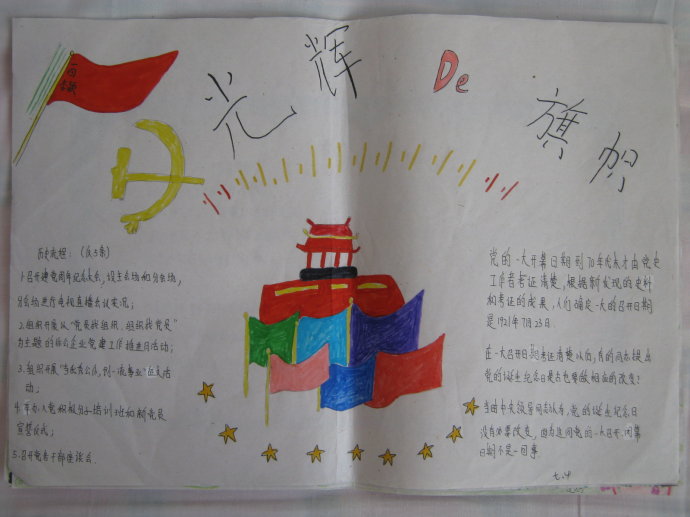 光辉 De 旗帜
历史疑题：（仅5条）
1.召开建党周年纪念大会，设主会场和分会场，
分会场进行电视直播会议实况；
2.组织开展以"党员找组织、组织找党员"
为主题的非公企业党建工作推进月活动；
3、组织开展"当优秀公仆，创一流事业"征文活
动；
4.举办入党积极分子培训班和新党员
宣誓仪式；
5.召开党员干部座谈会.
党的一大开幕日期到70年代末才由党史
工作者考证清楚，根据新发现的史料
和考证的成果，人们确定一大的召开日期
是1921年7月23日.
在一大召开日期考证清楚以后，有的同志提出
党的诞生纪念日是否也要做相应的改变？
当时中央领导同志认为，党的诞生纪念日
没有必要改变，因为这同党的一大召开闭幕
日期不是一回事